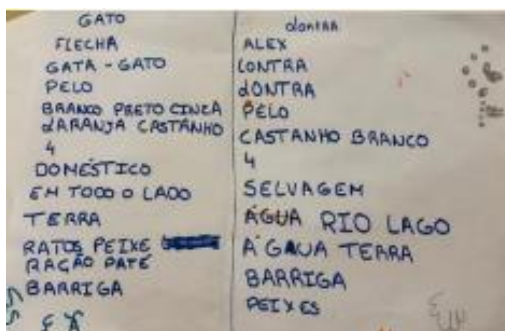 GATO
FLECHA
GATA - GATO
PELO
BRANCO PRETO CINZA
LARANJA CASTANHO
4
DOMÉSTICO
EM TODO O LADO
TERRA
RATOS PEIXE
RAÇÃO PATÉ
BARRIGA
LONTRA
ALEX
LONTRA
LONTRA
PELO
CASTANHO BRANCO
4
SELVAGEM
ÁGUA RIO LAGO
ÁGAUA TERRA
BARRIGA
PEIXES